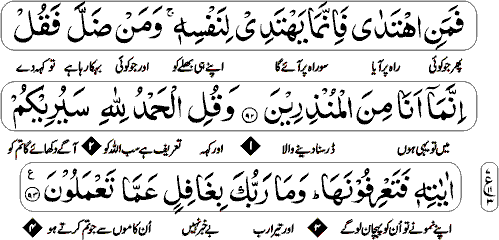 فَمَنِ اهْتَدٰى فَاِنَّمَا يَهْتَدِىْ لِنَفْسِهٖ ۚ وَمَنْ ضَلَّ فَقُلْ
پھر جو کوئی راہ پر آیا سو راہ پر آئے گا اپنے ہی بھلے کو اور جو کوئی بہکا رہا ہے تو کہہ دے
اِنَّمَآ اَنَا مِنَ الْمُنْذِرِيْنَ ﴿۹۲﴾ وَقُلِ الْحَمْدُ لِلّٰهِ سَيُرِيْكُمْ
میں تو یہی ہوں ڈر سنا دینے والا ۱ اور کہہ تعریف ہے سب اللہ کو ۲ آگے دکھائے گا تم کو
اٰيٰتِهٖ فَتَعْرِفُوْنَهَا ؕ وَمَا رَبُّكَ بِغَافِلٍ عَمَّا تَعْمَلُوْنَ ﴿۹۳﴾
اپنے نمونے تو اُن کو پہچان لو گے ۳ اور تیرا رب بے خبر نہیں اُن کاموں سے جو تم کرتے ہو ۴